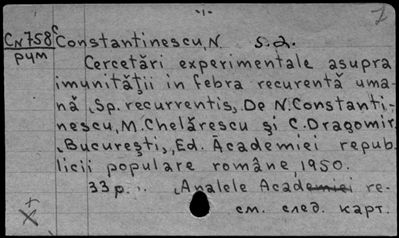 -1-
CN758c Constantinescu, N. s.a.
рум
Cercetări experimentale asupra
imunităţii in febra recurentă uma-
nă Sp. recurrentis, De N. Constanti-
nescu, M. Chelărescu şi C. Dragomir.
Bucureşti, Ed. Academiei repub-
licii populare române, 1950.
33 p. Analele Academiei re-
см. след. карт.